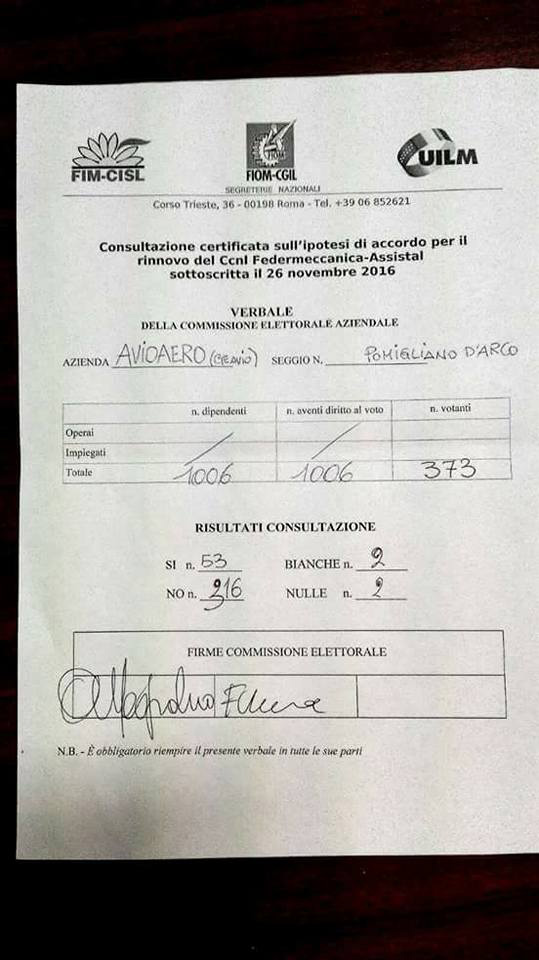 FIM-CISL
FIOM
FIOM-CGIL
UILM
SEGRETERIE NAZIONALI
Corso Trieste, 36 - 00198 Roma - Tel. +39 06 852621
Consultazione certificata sull'ipotesi di accordo per il
rinnovo del Ccnl Federmeccanica-Assistal
sottoscritta il 26 novembre 2016
VERBALE
DELLA COMMISSIONE ELETTORALE AZIENDALE
AZIENDA AVIOAERO (GEAVIO) SEGGIO N. POMIGLIANO D'ARCO
n. dipendenti n. aventi diritto al voto n. votanti
Operai
Impiegati
Totale 1006 1006 373
RISULTATI CONSULTAZIONE
SI n. 53 BIANCHE n. 2
NO n. 316 NULLE n. 2
FIRME COMMISSIONE ELETTORALE
N.B. - È obbligatorio riempire il presente verbale in tutte le sue parti